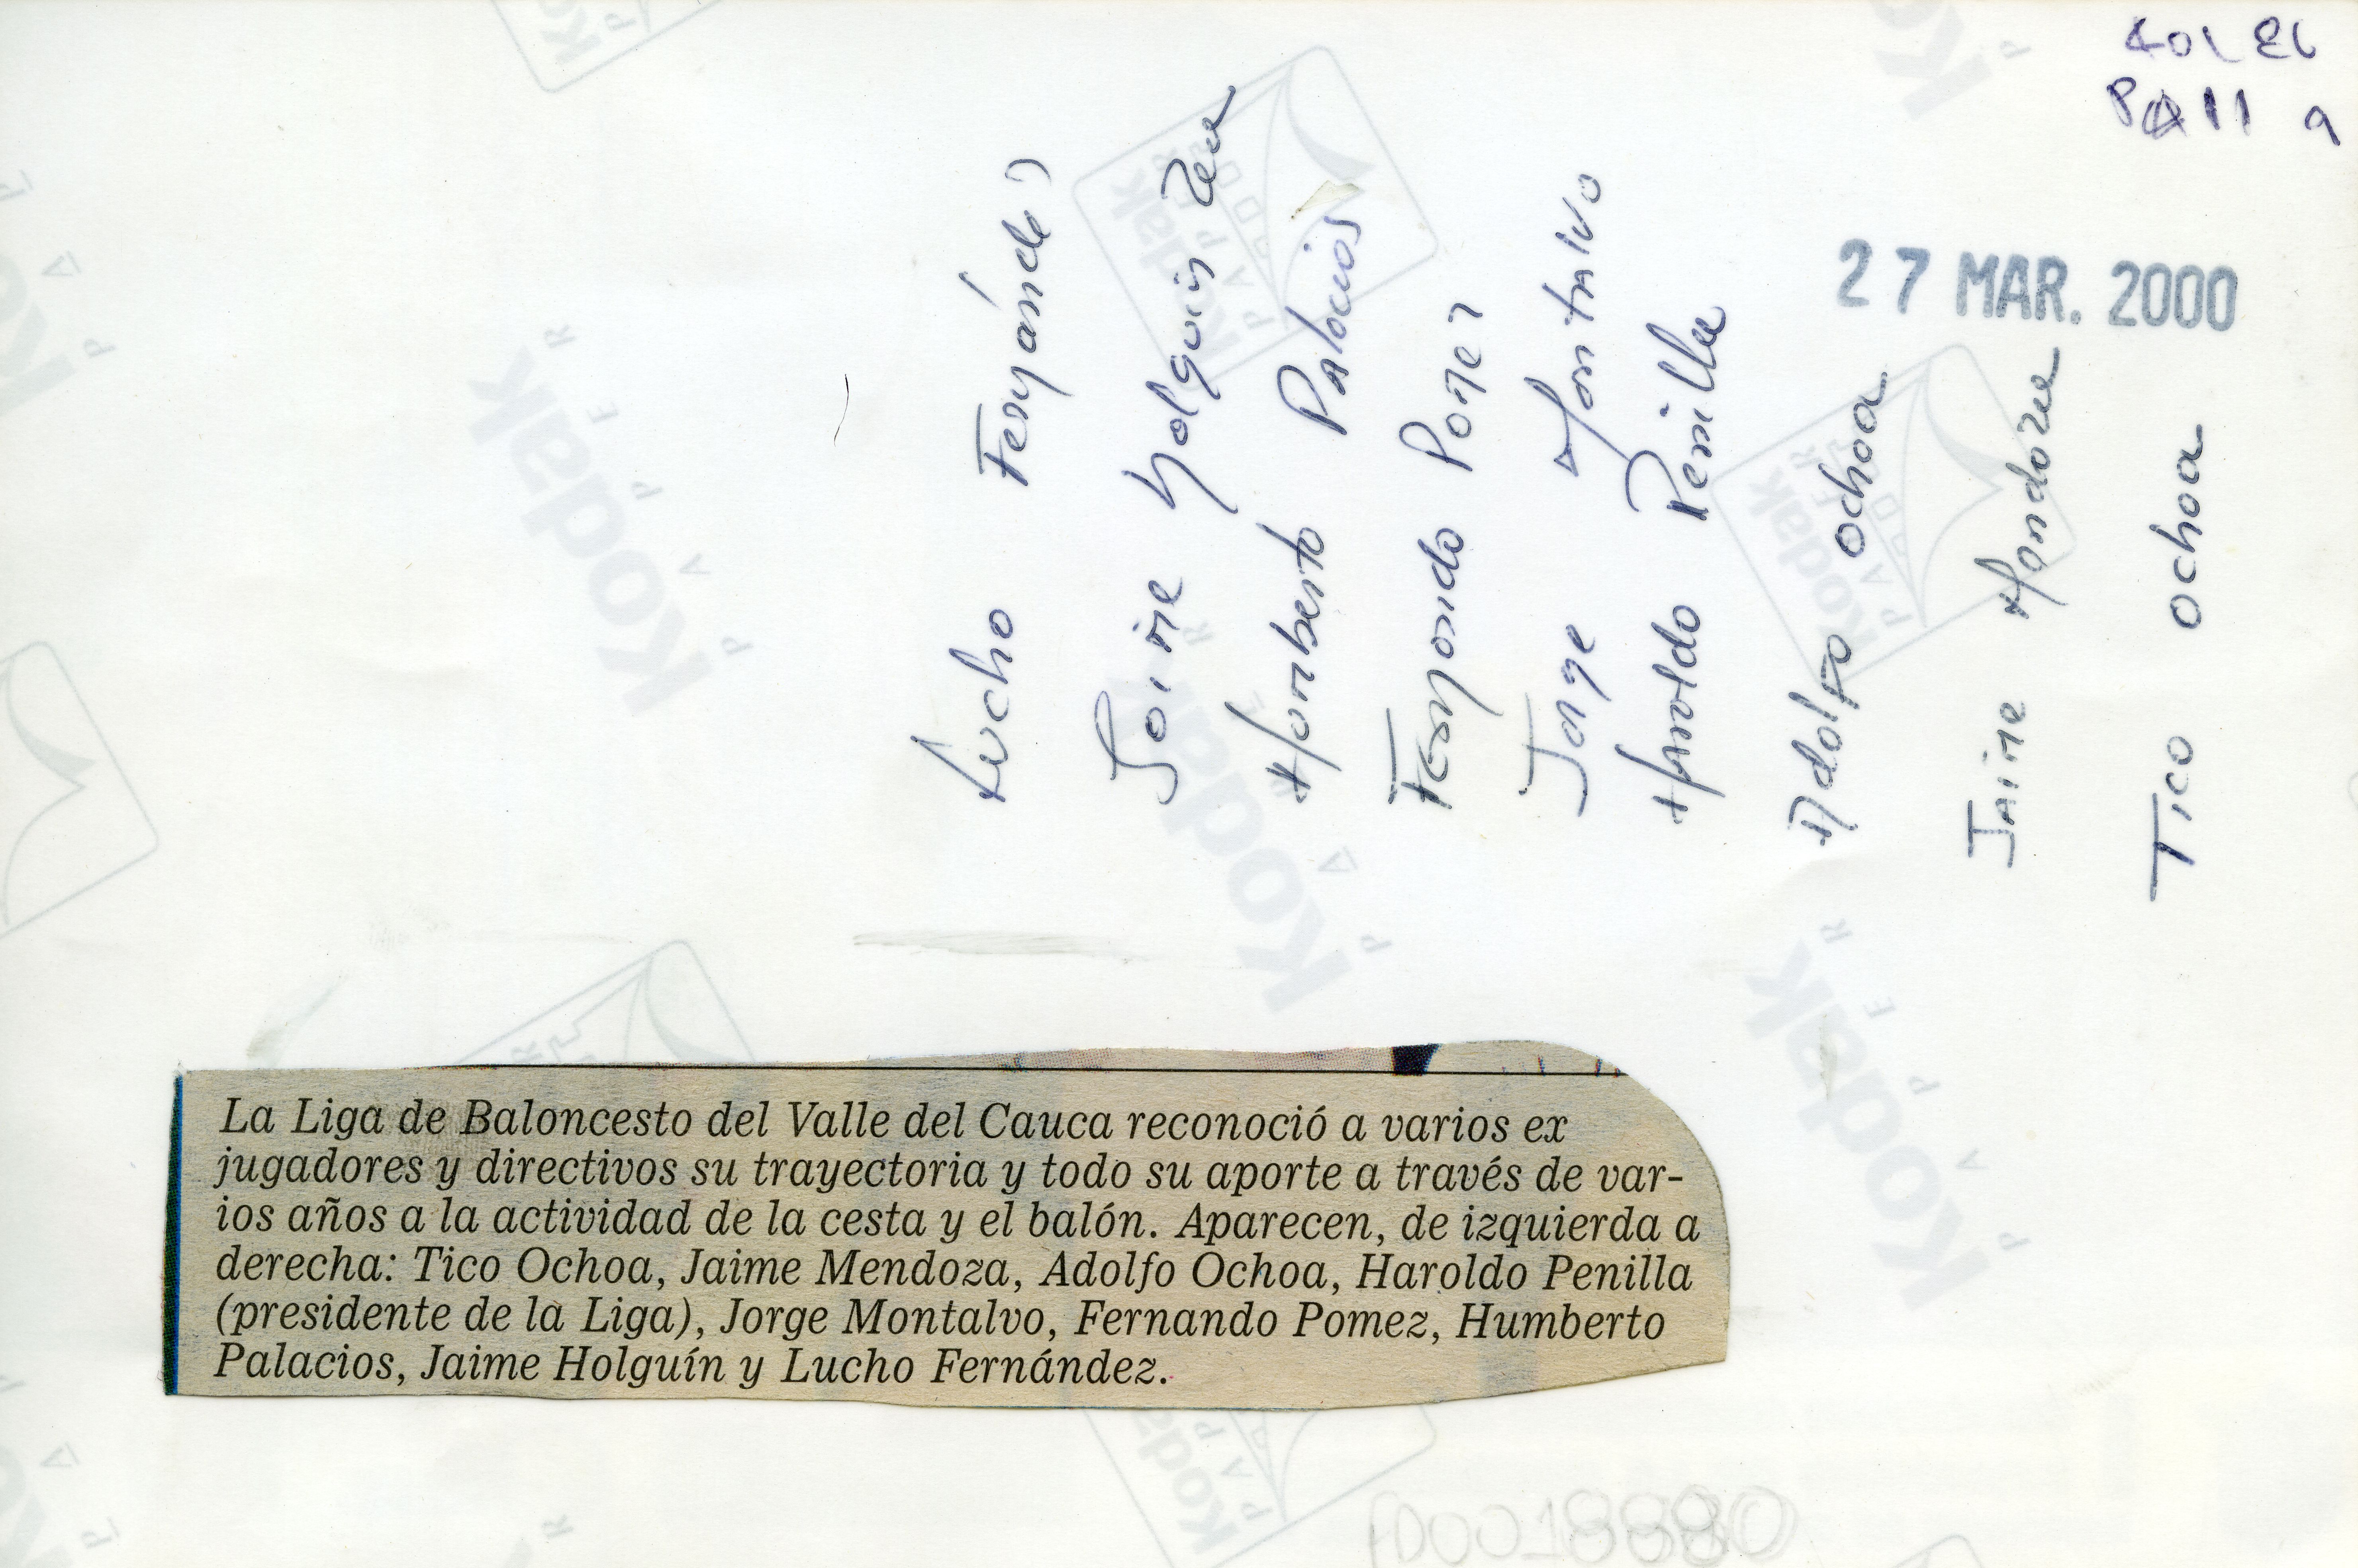 27 MAR. 2000
Lucho Fernández
Jaime Holguin
Humberto Palacios
Fernando Pomez
Jorge Montalvo
Haroldo Penilla
Adolfo Ochoa
Jaime Mendoza
Tico Ochoa
La Liga de Baloncesto del Valle del Cauca reconoció a varios ex
jugadores y directivos su trayectoria y todo su aporte a través de var-
ios años a la actividad de la cesta y el balón. Aparecen, de izquierda a
derecha: Tico Ochoa, Jaime Mendoza, Adolfo Ochoa, Haroldo Penilla
(presidente de la Liga), Jorge Montalvo, Fernando Pomez, Humberto
Palacios, Jaime Holguín y Lucho Fernández.
Kodak